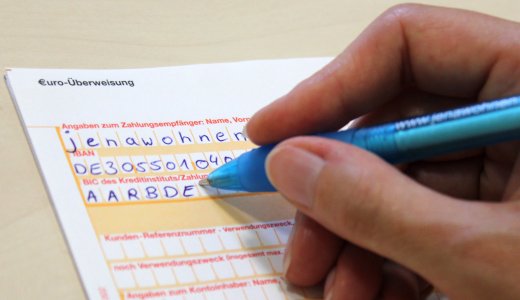 €uro-Überweisung
Angaben zum Zahlungsempfänger: Name, Vorn
jenawohnen
IBAN
DE30550104
BIC des Kreditinstituts/Zahlun
AARBDE
Kunden-Referenznummer - Verwendungszweck,
noch Verwendungszweck (insgesamt max.
Angaben zum Kontoinhaber: Name,